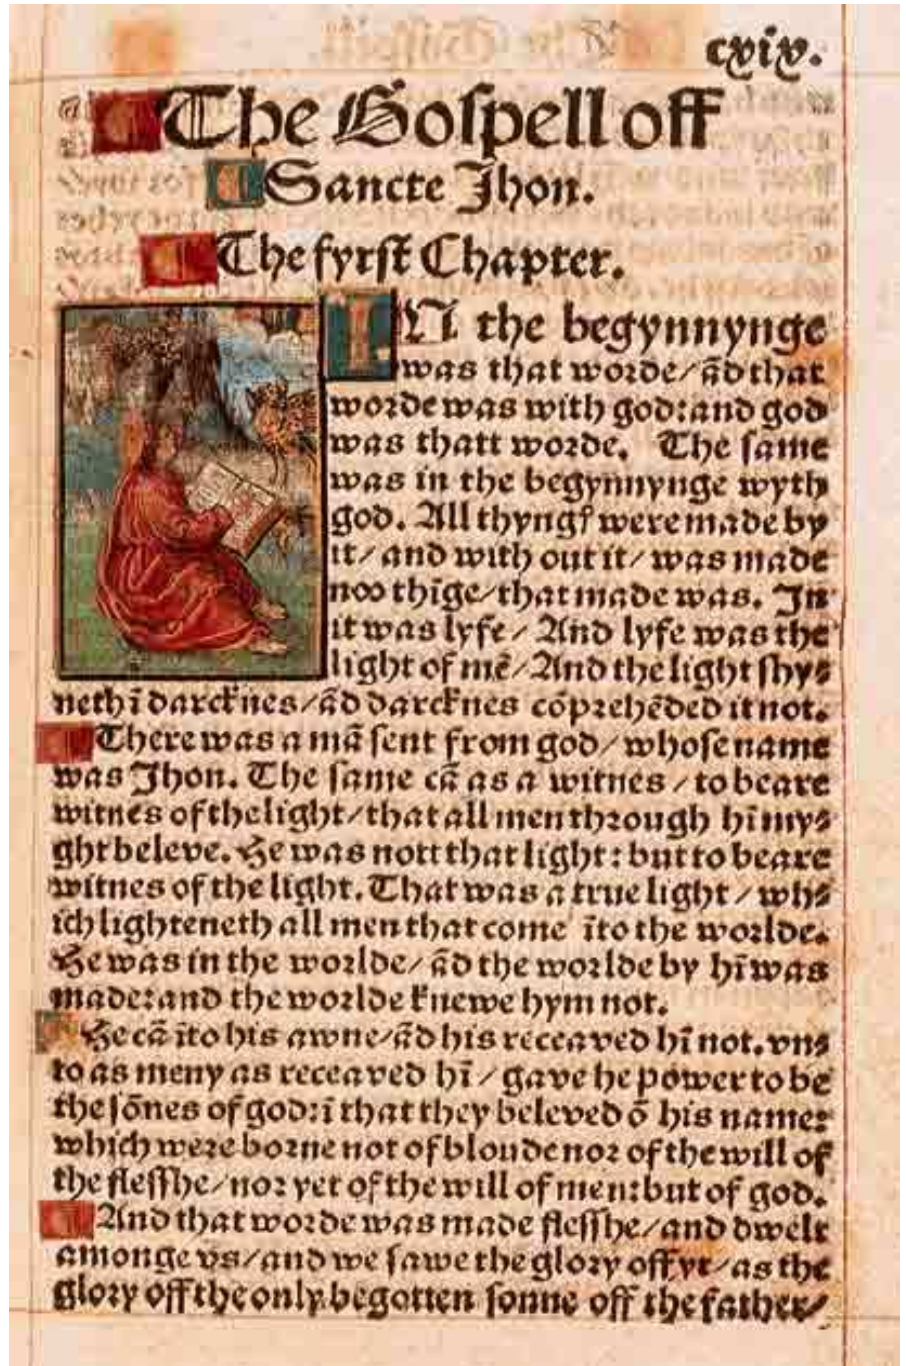 cxix.
The Gospell off
Sancte Jhon.
The fyrst Chapter.
IN the begynnynge
was that worde/ ãd that
worde was with god: and god
was thatt worde. The same
was in the begynnynge wyth
god. All thyngꝭ were made by
it/ and with out it/ was made
noo thĩge/ that made was. In
it was lyfe/ And lyfe was the
light of mẽ/ And the light shy⸗
neth ĩ darcknes/ ãd darcknes cõprehẽded it not.
There was a mã sent from god/ whose name
was Jhon. The same cã as a witnes/ to beare
witnes of the light/ that all men through hĩ my⸗
ght beleve. He was nott that light: but to beare
witnes of the light. That was a true light/ whi⸗
ch lighteneth all men that come ĩto the worlde.
He was in the worlde/ ãd the worlde by hĩ was
made: and the worlde knewe hym not.
He cã ĩto his awne/ ãd his receaved hĩ not. vn⸗
to as meny as receaved hĩ/ gave he power to be
the sõnes of god: ĩ that they beleved õ his name:
which were borne not of bloude nor of the will of
the flesshe/ nor yet of the will of men: but of god.
And that worde was made flesshe/ and dwelt
amonge vs/ and we sawe the glory off yt/ as the
glory off the only begotten sonne off the father/